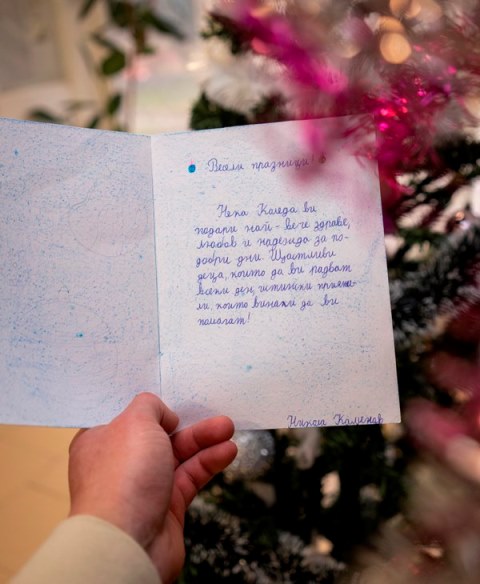 Весели празници!
Нека Коледа ви
подари най-вече здраве,
любов и надежда за по-
добри дни. Щастливи
деца, които да ви радват
всеки ден, истински прияте-
ли, които винаги да ви
помагат!